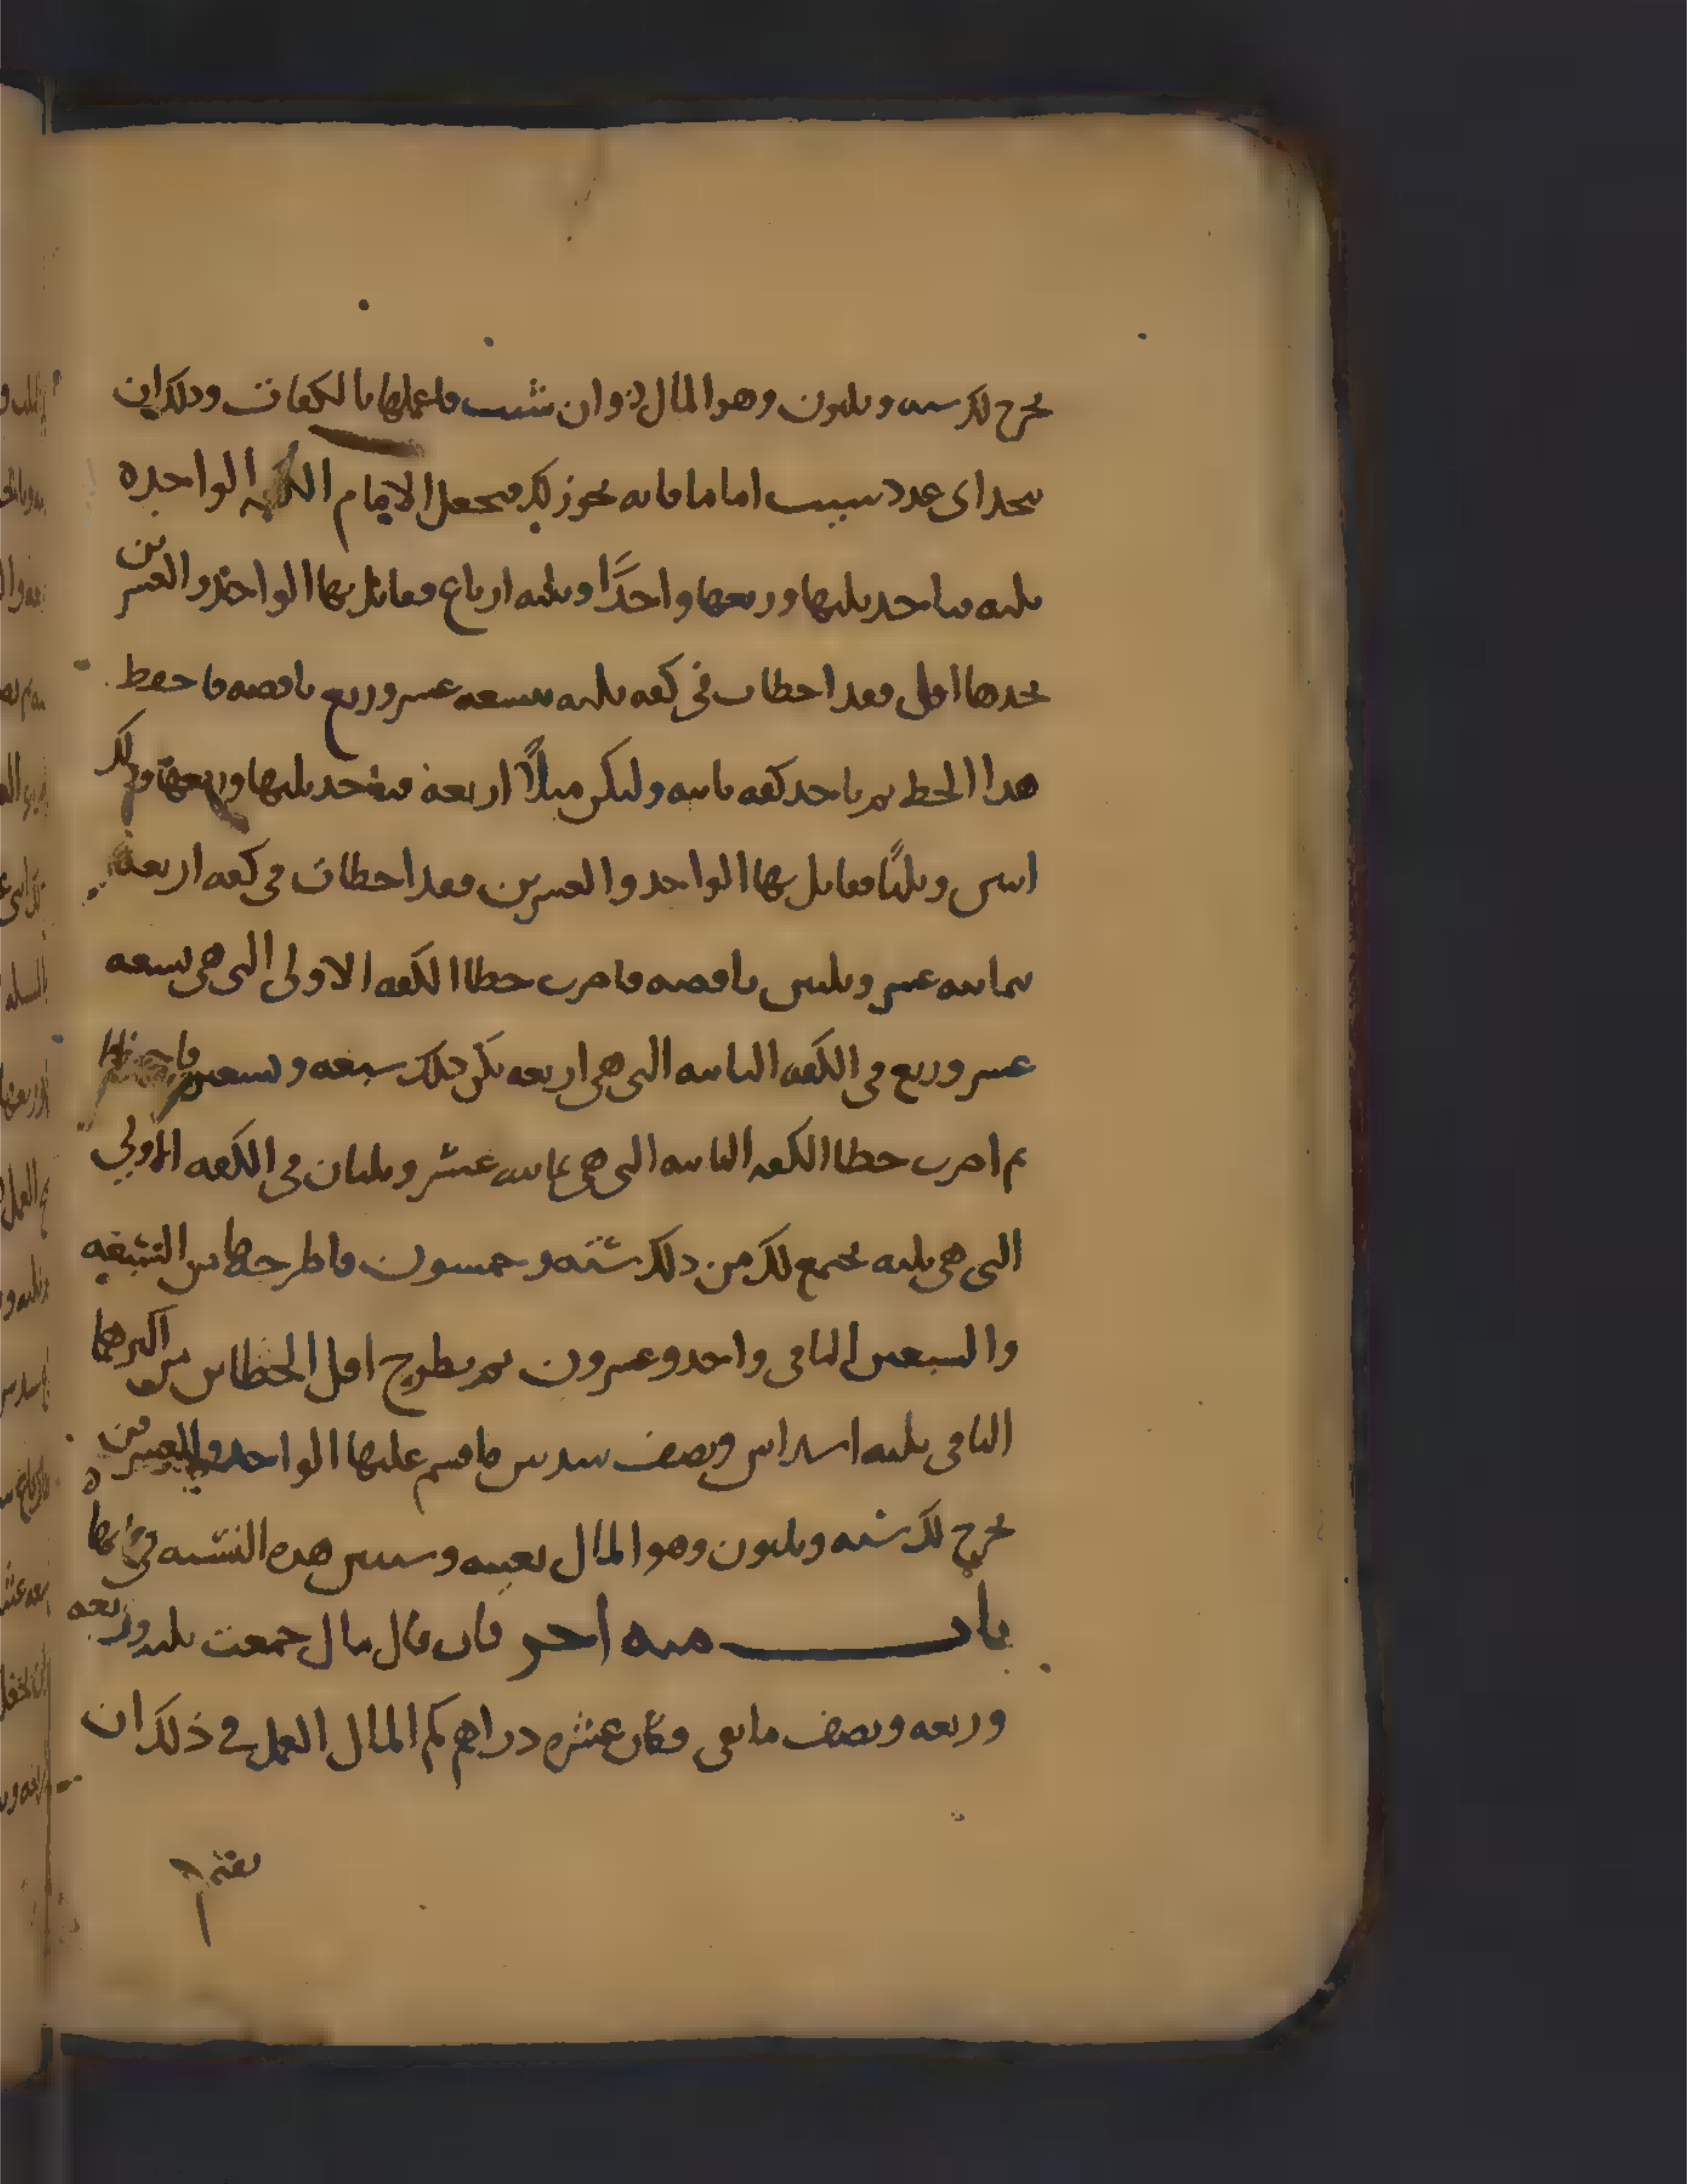 يخرج لك ستة وثلثون وهو المال ٥ وان شئت فاعملها بالكفات وذلك ان
تتخذ اى عدد شيت اماما فانه يجوز لك فتجعل الامام الكفه الواحده
ثلثه فتاخذ ثلثها وربعها واحدًا وثلثه ارباع فقابل بها الواحد والعشرين
تجدها اقل فقد اخطات فى كفه ثلثه بتسعه عشر وربع ناقصه فاحفظ
هذا الخطا ثم تاخذ كفه ثانيه ولتكن مثلًا اربعة فتاخذ ثلثها وربعها وذلك
اثنين وثلثًا فقابل بها الواحد والعشرين فقد اخطات فى كفه اربعة
بثمانيه عشر وثلثين ناقصه فاضرب خطا الكفه الاولى التى هى تسعه
عشر وربع فى الكفه الثانيه التى هى اربعه يكن ذلك سبعه وسبعين فاحفظها
ثم اضرب خطا الكفه الثانيه التى هى ثمانيه عشر وثلثان فى الكفه الاولى
التى هى ثلثه يجتمع لك من ذلك ستة وخمسون فاطرحها من السبعه
والسبعين الباقى واحد وعشرون ثم تطرح اقل الخطاين من اكبرهما
الباقى ثلثه اسداس ونصف سدس فاقسم عليها الواحد والعشرين
يخرج لك ستة وثلثون وهو المال بعينه وستبين هذه النسبه فى بابها
باب منه اخر فان قال مال جمعت ثلثه وربعه
وربعه ونصف ما بقى فكان عشره دراهم كم المال العمل فى ذلك ان